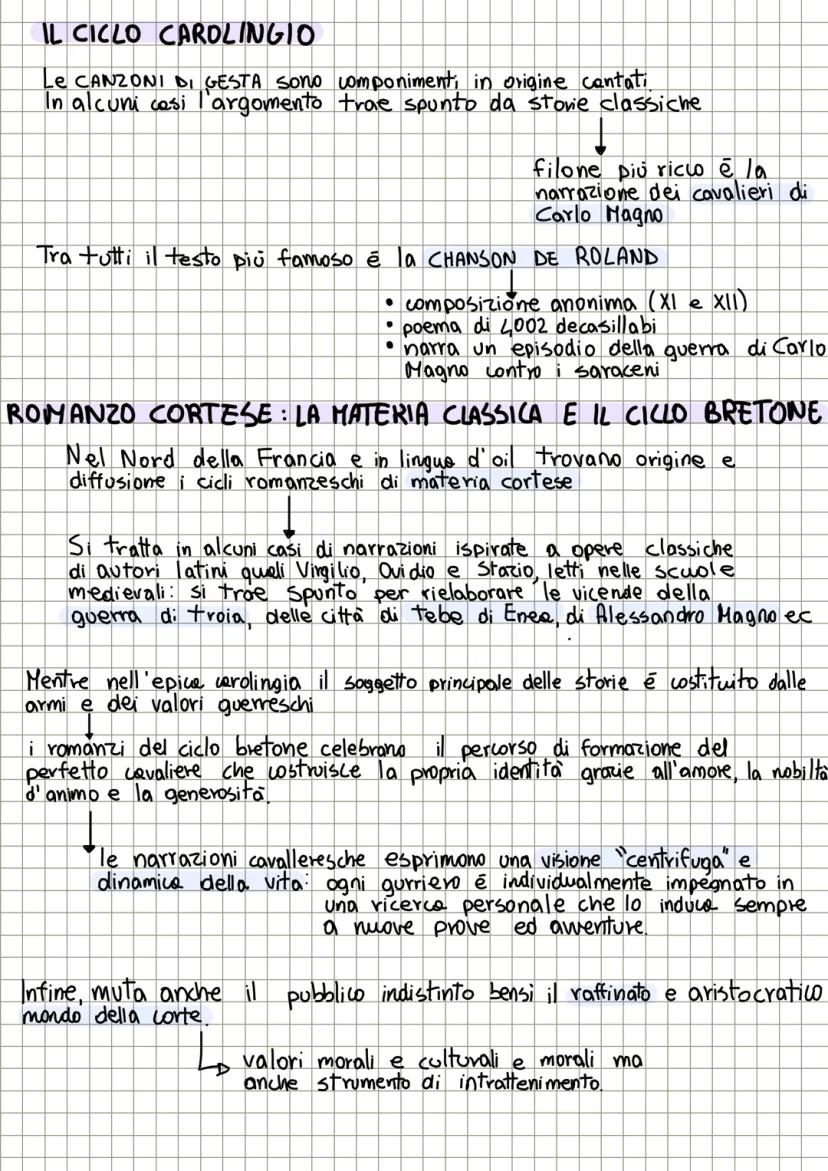 IL CICLO CAROLINGIO
Le CANZONI DI GESTA sono componimenti in origine cantati.
In alcuni casi l'argomento trae spunto da storie classiche
filone più ricco ē la
narrazione dei cavalieri di
Carlo Magno
Tra tutti il testo più famoso é la CHANSON DE ROLAND
• composizione anonima (XI e XII)
• poema di 4002 decasillabi
• narra un episodio della guerra di Carlo
Magno contro i saraceni
ROMANZO CORTESE: LA MATERIA CLASSICA E IL CICLO BRETONE
Nel Nord della Francia e in lingua d'oil trovano origine e
diffusione i cicli romanzeschi di materia cortese
Si tratta in alcuni casi di narrazioni ispirate a opere classiche
di autori latini quali Virgilio, Ovidio e Stazio, letti nelle scuole
medievali: si trae spunto per rielaborare le vicende della
guerra di troia, delle città di Tebe di Enea, di Alessandro Magno ec
Mentre nell'epica carolingia il soggetto principale delle storie é costituito dalle
armi e dei valori guerreschi
i romanzi del ciclo bretone celebrano il percorso di formazione del
perfetto cavaliere che costruisce la propria identità grazie all'amore, la nobiltà
d'animo e la generosità.
le narrazioni cavalleresche esprimono una visione "centrifuga" e
dinamica della vita: ogni gurriero é individualmente impegnato in
una ricerca personale che lo induce sempre
a nuove prove ed avventure.
Infine, muta anche il pubblico indistinto bensì il raffinato e aristocratico
mondo della corte.
valori morali e culturali e morali ma
anche strumento di intrattenimento.